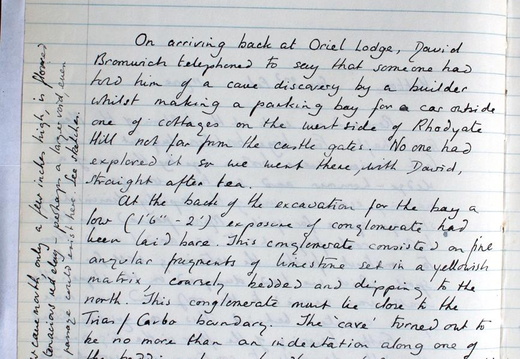 On arriving back at Oriel Lodge, David
Bromwich telephoned to say that someone had
told him of a cave discovery by a builder
whilst making a parking bay for a car outside
one of cottages on the west side of Rhodyate
Hill not far from the castle gates. No one had
explored it so we went there, with David,
straight after tea.
At the back of the excavation for the bay a
low (1'6" - 2') exposure of conglomerate had
been laid bare. This conglomerate consisted on fine
angular fragments of limestone set in a yellowish
matrix, coarsely bedded and dipping to the
north. This conglomerate must be close to the
Trias / Carbo boundary. The 'cave' turned out to
be no more than an indentation along one of
the
cave mouth, only a few inches high, is floored
tenacious red clay - perhaps a large void even
passage could exist here. See sketches.